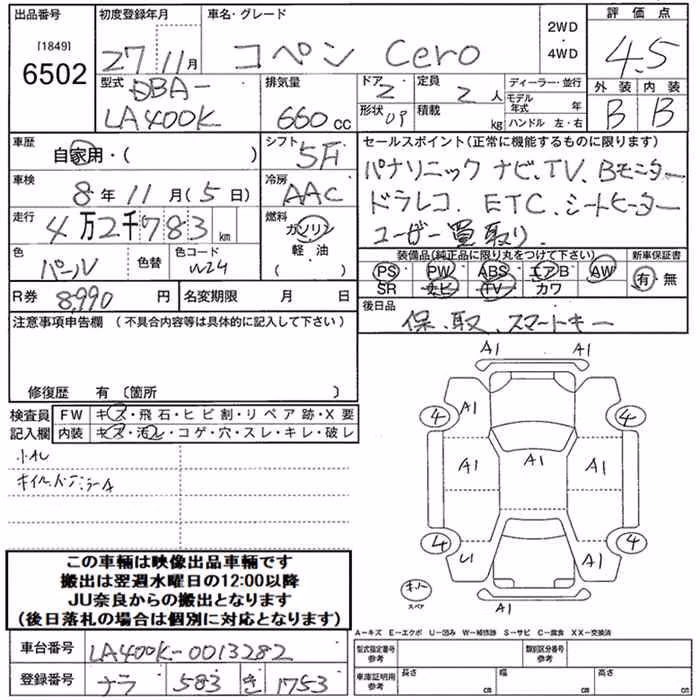 出品番号 初度登録年月 車名・グレード 2WD ・ 4WD 評価点
[1849] 6502 27年11月 コペン Cero 4.5
型式 DBA- LA400K 排気量 660cc ドア 2 形状 OP 定員 2人 積載 kg ディーラー・並行 モデル年式 年 ハンドル 左・右 外装 B 内装 B
車歴 自家用・( ) シフト 5F セールスポイント(正常に機能するものに限ります)
パナソニック ナビ、TV、Bモニター
車検 8年11月(5日) 冷房 AAC ドラレコ、ETC、シートヒーター
走行 4万2千783km 燃料 ガソリン・軽油・( ) ユーザー買取り、
色 パール 色替 色コード W24 装備品(純正品に限り丸をつけて下さい) 新車保証書
PS PW ABS エアB AW 有・無
SR ナビ TV カワ
R券 8,990円 名変期限 月 日 後日品
注意事項申告欄 (不具合内容等は具体的に記入して下さい) 保、取、スマートキー
修復歴 有 〔箇所 〕
検査員 FW キズ・飛石・ヒビ割・リペア跡・X要
記入欄 内装 キズ・汚レ・コゲ・穴・スレ・キレ・破レ
A1 A1
4 A1 4
A1 A1 A1
4 U1 A1 4
A1 A1
スペア
この車輛は映像出品車輛です
搬出は翌週水曜日の12:00以降
JU奈良からの搬出となります
(後日落札の場合は個別に対応となります)
A-キズ E-エクボ U-凹み W-補修跡 S-サビ C-腐食 XX-交換済
車台番号 LA400K-0013282 型式指定番号 参考 類別区分番号 参考
登録番号 ナラ 583 き 1753 車庫証明用 参考 長さ cm 幅 cm 高さ cm